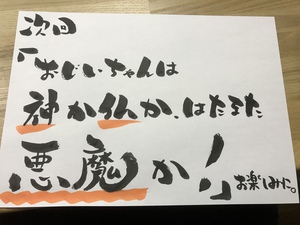 次回
「おじいちゃんは
神か仏か、はたまた
悪魔か！」お楽しみに。